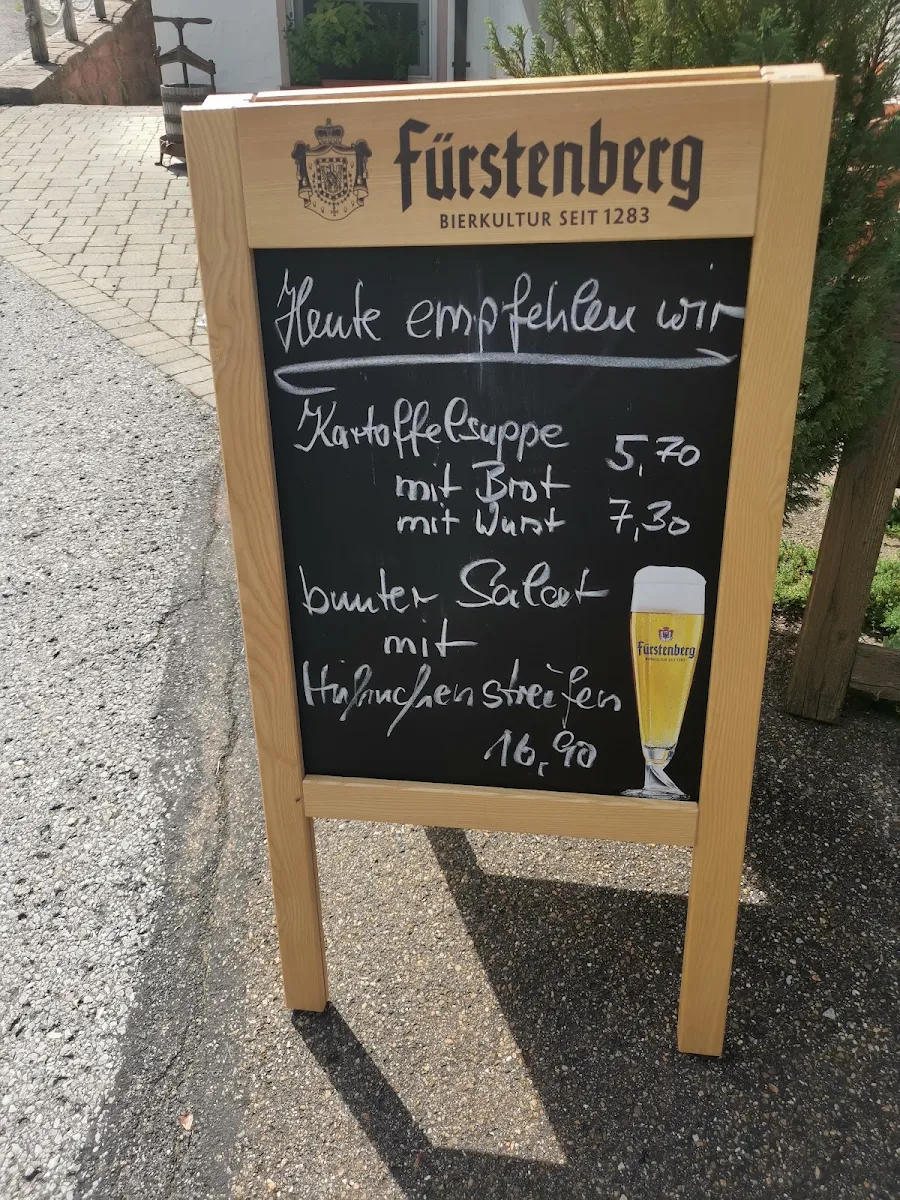 Fürstenberg
BIERKULTUR SEIT 1283
Heute empfehlen wir
Kartoffelsuppe
mit Brot 5,70
mit Wurst 7,30
bunter Salat
mit
Hühnchenstreifen
16,90
Fürstenberg
BIERKULTUR SEIT 1283